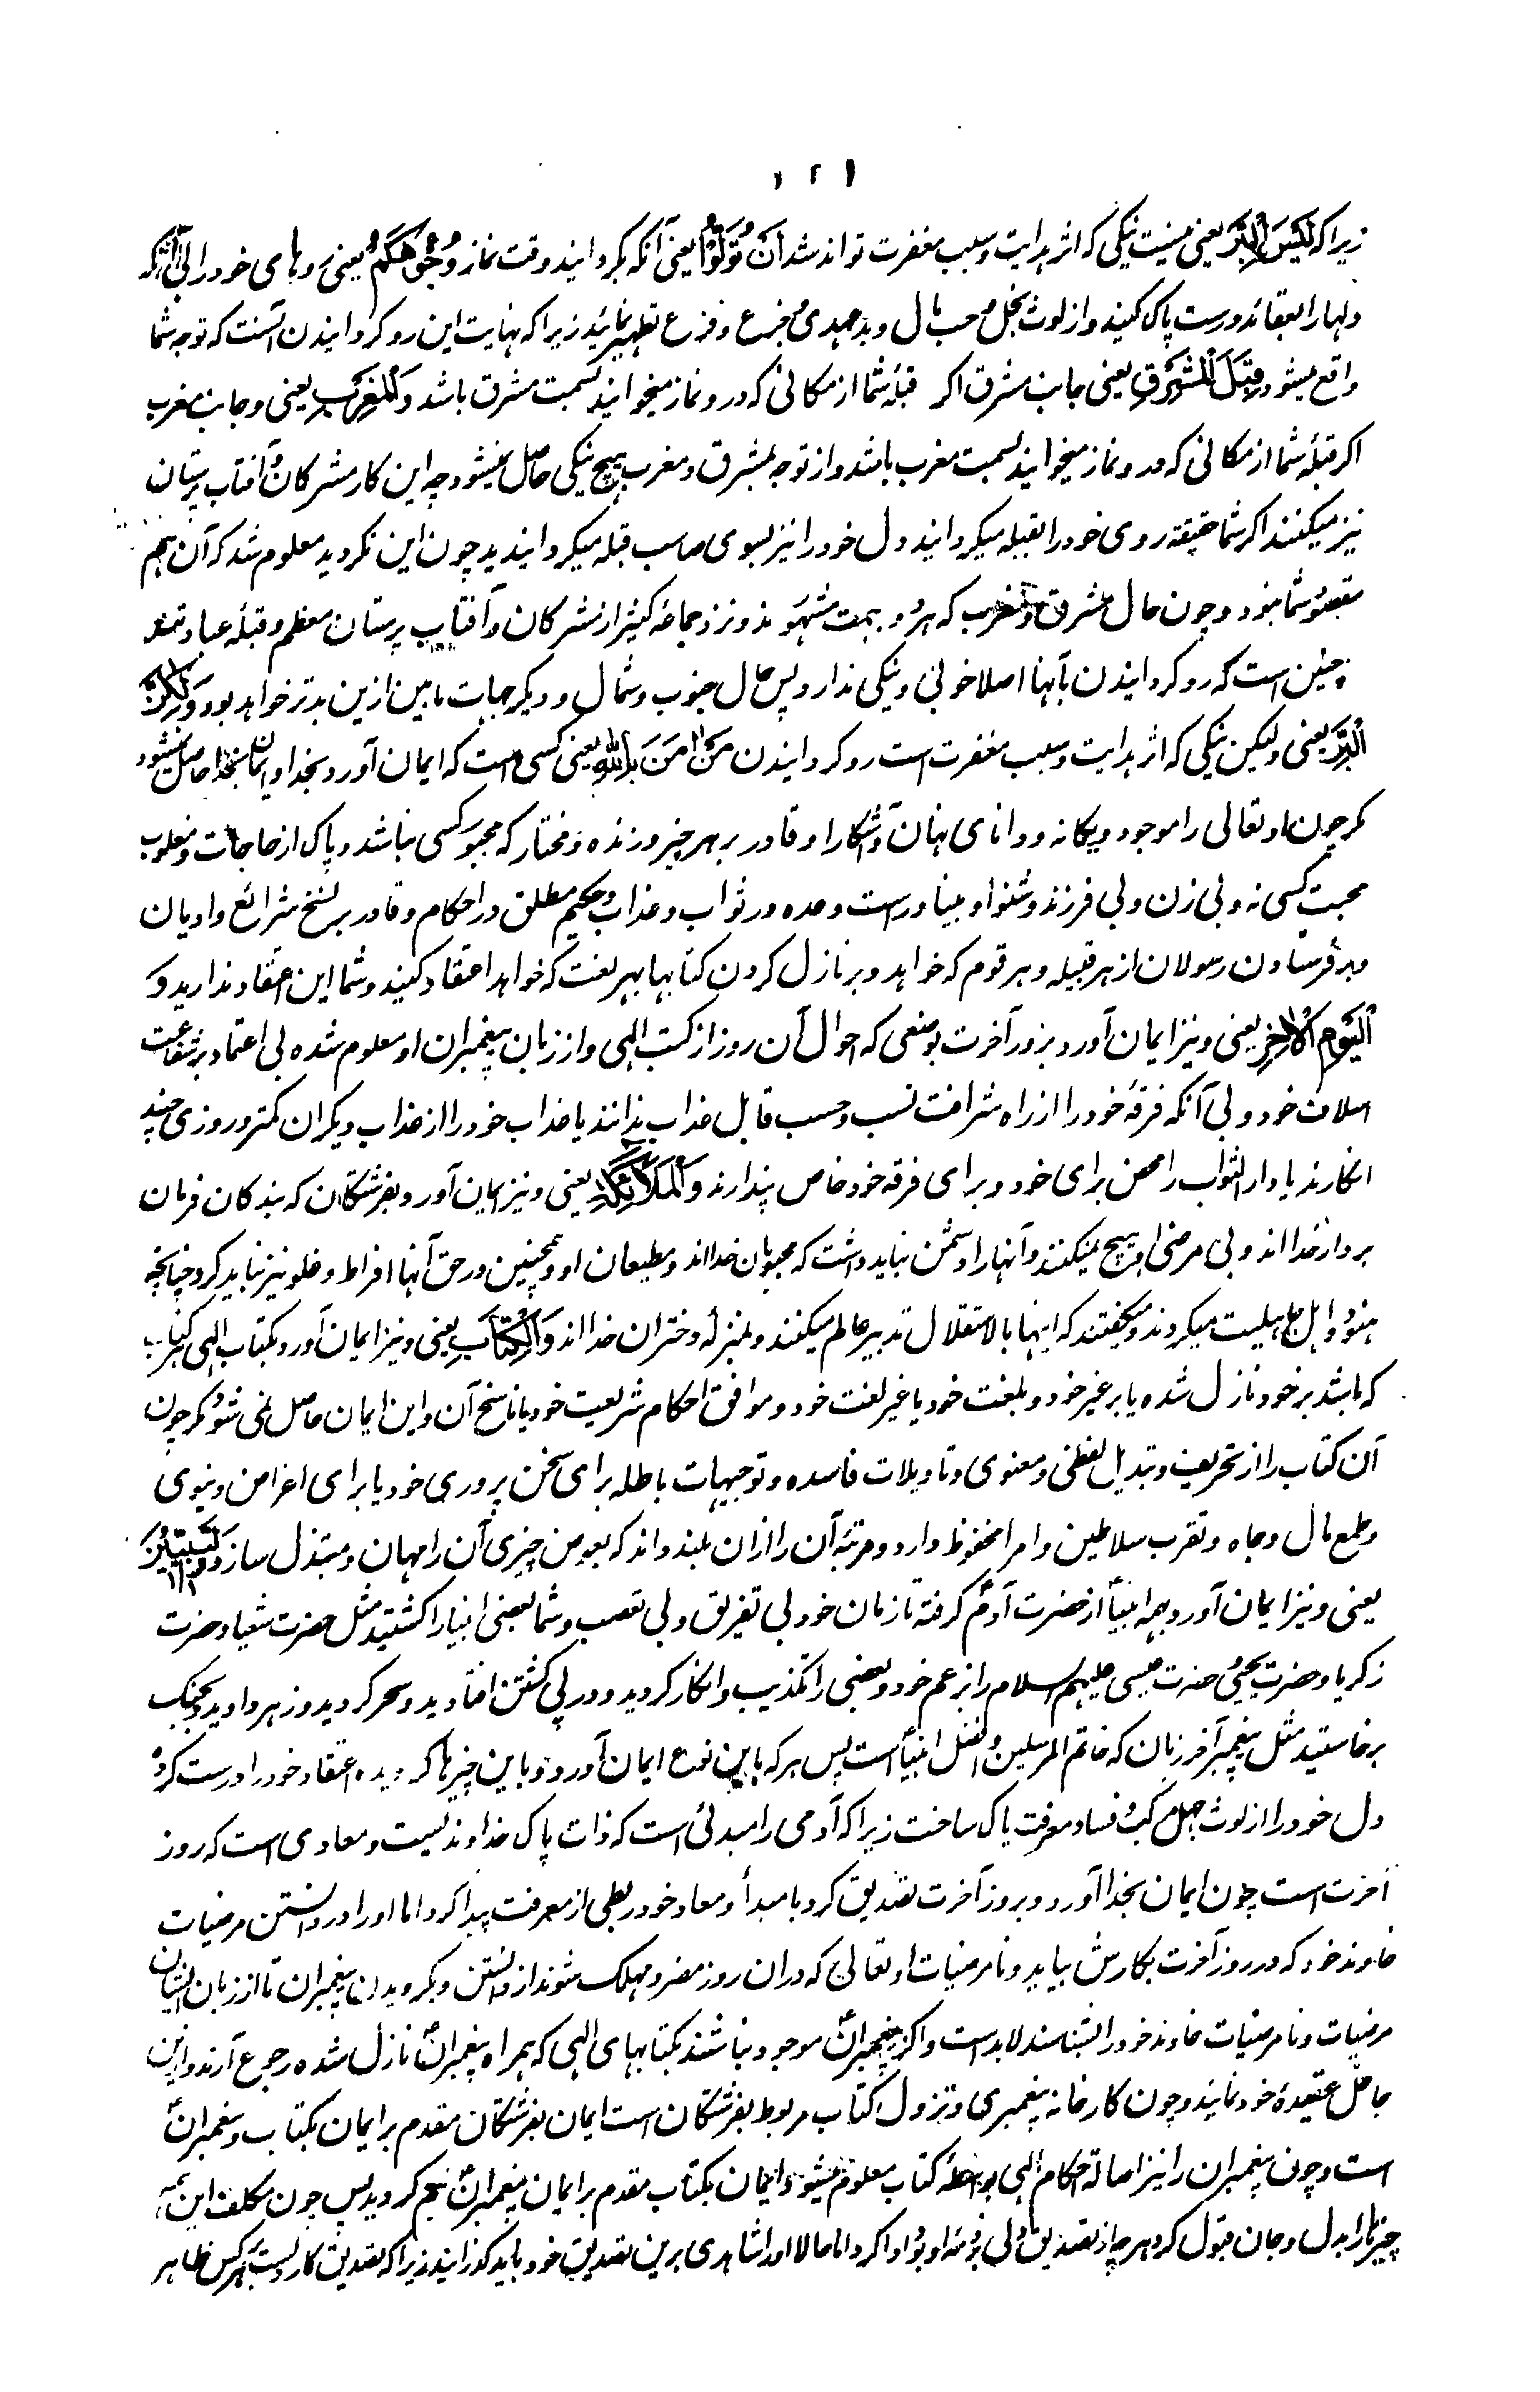 ۱۲۱
زیراکه لَيْسَ الْبِرَّ یعنی نیست نیکی که اثر هدایت و سبب مغفرت تواند شد اَنْ تُوَلُّوْا یعنی آنکه بگردانید وقت نماز وُجُوْهَكُمْ یعنی روهای خود را بی آنکه
دلها را بعقائد درست پاک کنید و از لوث بخل و حب مال و بدعهدی و جزع و فزع تطهیر نمائید زیراکه نهایت این رو گردانیدن آنست که توجه شما
واقع میشود قِبَلَ الْمَشْرِقِ یعنی جانب مشرق اگر قبلهٔ شما از مکانی که درو نماز میخوانید بسمت مشرق باشد وَالْمَغْرِبِ یعنی و جانب مغرب
اگر قبلهٔ شما از مکانی که درو نماز میخوانید بسمت مغرب باشد و از توجه بمشرق و مغرب هیچ نیکی حاصل نمیشود چه این کار مشرکان و آفتاب پرستان
نیز میکنند اگر شما حقیقة روی خود را بقبله میگردانید دل خود را نیز بسوی صاحب قبله میگردانیدید چون این نکردید معلوم شد که آن هم
مقصود شما نبود و چون حال مشرق و مغرب که هر دو جهت مشهور اند و نزد جماعهٔ کثیر از مشرکان و آفتاب پرستان معظم و قبلهٔ عبادتند
چنین است که رو گردانیدن بآنها اصلا خوبی و نیکی ندارد پس حال جنوب و شمال و دیگر جهات مابین ازین بدتر خواهد بود وَلٰكِنَّ
الْبِرَّ یعنی ولیکن نیکی که اثر هدایت و سبب مغفرت است رو گردانیدن مَنْ اٰمَنَ بِاللّٰهِ یعنی کسی است که ایمان آورد بخدا و ایمان بخدا حاصل نمیشود
مگر چون او تعالی را موجود و یگانه و دانای نهان و آشکارا و قادر بر هر چیز و زنده و مختار که مجبور کسی نباشد و پاک از حاجات و مغلوب
محبت کسی نه و بی زن و بی فرزند و شنوا و بینا و راست وعده در ثواب و عذاب و حکیم مطلق در احکام و قادر بر نسخ شرائع و ادیان
و بر فرستادن رسولان از هر قبیله و هر قوم که خواهد و بر نازل کردن کتابها بهر لغت که خواهد اعتقاد کنید و شما این اعتقاد ندارید وَ
الْيَوْمِ الْاٰخِرِ یعنی و نیز ایمان آورد بروز آخرت بوضعی که احوال آن روز از کتب الهی و از زبان پیغمبران او معلوم شده بی اعتماد بر شفاعت
اسلاف خود و بی آنکه فرقهٔ خود را از راه شرافت نسب و حسب قابل عذاب ندانند یا عذاب خود را از عذاب دیگران کمتر و روزی چند
انگارند یا دار الثواب را محض برای خود و برای فرقه خود خاص پندارند وَالْمَلٰٓئِكَةِ یعنی و نیز ایمان آورد بفرشتگان که بندگان فرمان
بردار خدا اند و بی مرضی او هیچ نمیکنند و آنها را دشمن نباید داشت که محبوبان خدا اند و مطیعان او و همچنین در حق آنها افراط و غلو نیز نباید کرد چنانچه
هنود و اهل جاهلیت میکردند و میگفتند که اینها بالاستقلال تدبیر عالم میکنند و بمنزلهٔ دختران خدا اند وَالْكِتٰبِ یعنی و نیز ایمان آورد بکتاب الهی هر کتاب
که باشد بر خود نازل شده یا بر غیر خود و بلغت خود یا غیر لغت خود و موافق احکام شریعت خود یا ناسخ آن و این ایمان حاصل نمی شود مگر چون
آن کتاب را از تحریف و تبدیل لفظی و معنوی و تاویلات فاسده و توجیهات باطله برای سخن پروری خود یا برای اغراض دنیوی
و طمع مال و جاه و تقرب سلاطین و امرا محفوظ دارد و مرتبهٔ آن را ازان بلند داند که بعوض چیزی آن را مهان و مبتذل سازد وَالنَّبِيّٖنَ
یعنی و نیز ایمان آورد بهمه انبیا از حضرت آدم گرفته تا زمان خود بی تفریق و بی تعصب و شما بعضی انبیا را کشتید مثل حضرت شعیا و حضرت
زکریا و حضرت یحیی و حضرت عیسی علیهم السلام را بزعم خود و بعضی را تکذیب و انکار کردید و در پی کشتن افتادید و سحر کردید و زهر دادید و بجنگ
برخاستید مثل پیغمبر آخر زمان که خاتم المرسلین و افضل انبیا است پس هر که باین نوع ایمان آورد و باین چیزها گرویده اعتقاد خود را درست کرد و
دل خود را از لوث جهل مرکب و فساد معرفت پاک ساخت زیراکه آدمی را مبدئی است که ذات پاک خداوندیست و معادی است که روز
آخرت است چون ایمان بخدا آورد و بروز آخرت تصدیق کرد با مبدأ و معاد خود ربطی از معرفت پیدا کرد اما او را در دانستن مرضیات
خاوند خود که در روز آخرت بکارش بیاید و نامرضیات او تعالی که دران روز مضر و مهلک شوند از دانستن و گرویدن پیغمبران تا از زبان ایشان
مرضیات و نامرضیات خاوند خود را بشناسند لابد است و اگر پیغمبران موجود نباشند بکتابهای الهی که همراه پیغمبران نازل شده رجوع آرند و ازین
جا حل عقیدهٔ خود نمایند و چون کارخانه پیغمبری و نزول کتاب مربوط بفرشتگان است ایمان بفرشتگان مقدم بر ایمان بکتاب و پیغمبران
است و چون پیغمبران را نیز اصالة احکام الهی بواسطهٔ کتاب معلوم میشود ایمان بکتاب مقدم بر ایمان پیغمبران هم گردید پس چون مکلف این همه
چیزها را بدل و جان قبول کرد هر چه از تصدیق دلی بر ذمهٔ او بود ادا کرد اما حالا او را شاهدی برین تصدیق خود باید گذرانید زیراکه تصدیق کار دلست بر هر کس ظاهر